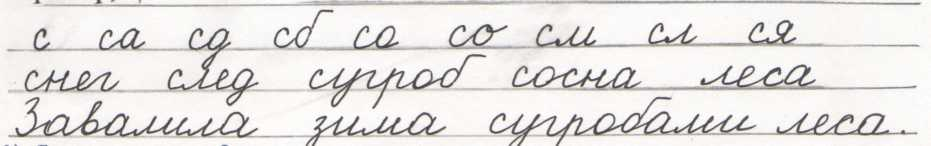 с са сд сб со со см сл ся
снег след сугроб сосна леса
Завалила зима сугробами леса.